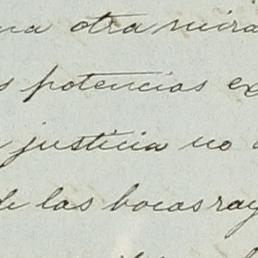 na otra mira
s potencias ex
justicia no
de las bocas ray